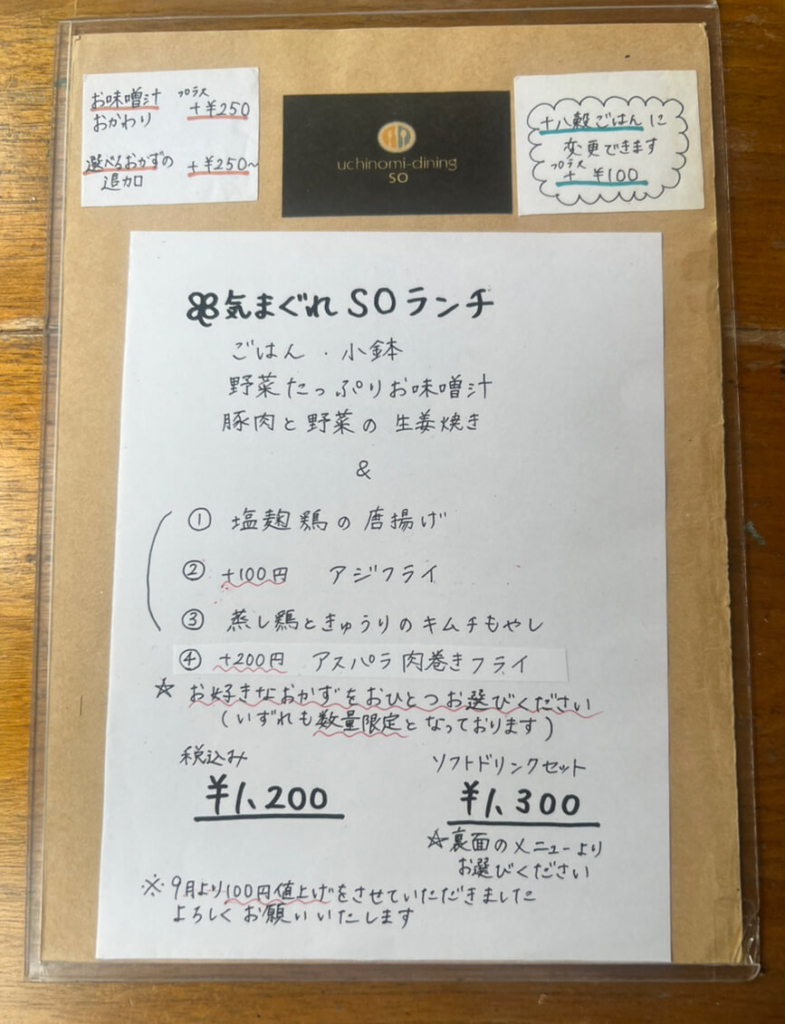 お味噌汁 プラス +¥250
おかわり
選べるおかずの +¥250~
追加
uchinomi-dining
SO
十八穀ごはんに
変更できます
プラス
+ ¥100
気まぐれSOランチ
ごはん・小鉢
野菜たっぷりお味噌汁
豚肉と野菜の生姜焼き
&
① 塩麹鶏の唐揚げ
② +100円 アジフライ
③ 蒸し鶏ときゅうりのキムチもやし
④ +200円 アスパラ肉巻きフライ
☆ お好きなおかずをおひとつお選びください
(いずれも数量限定となっております)
税込み
¥1,200
ソフトドリンクセット
¥1,300
☆裏面のメニューより
お選びください
※9月より100円値上げをさせていただきました
よろしくお願いいたします